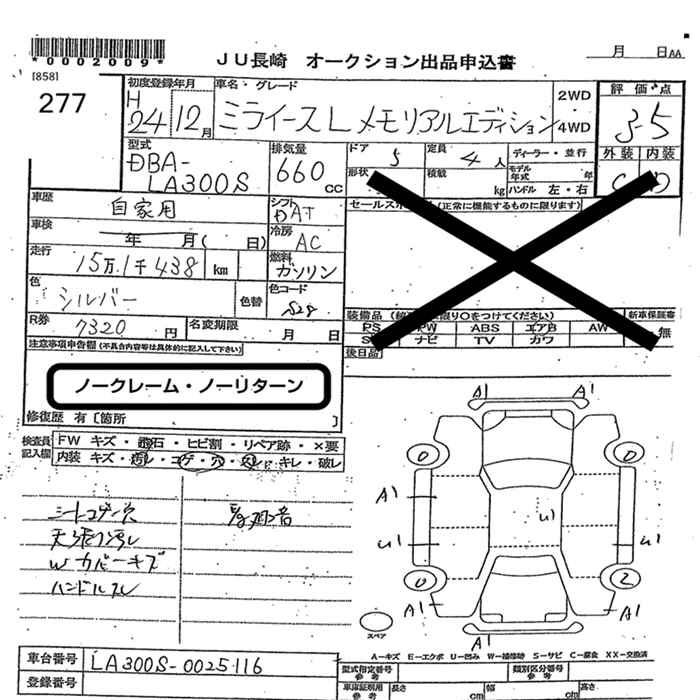 *0002009*
[858]
277
JU長崎 オークション出品申込書
月 日AA
初度登録年月 車名・グレード 評価点
H 24年12月 ミライース L メモリアルエディション 2WD・4WD 3.5
型式 DBA-LA300S 排気量 660CC ドア 5 定員 4人 ディーラー・並行 外装 内装
形状 積載 kg モデル年式 年 ハンドル 左・右 C D
車歴 自家用 シフト DAT セールスポイント(正常に機能するものに限ります)
車検 年 月( 日) 冷房 AC
走行 15万1千438km 燃料 ガソリン
色 シルバー 色替 色コード S28
R券 7320円 名変期限 月 日
装備品 をつけてください) 新車保証書
PS PW ABS エアB AW 無
ナビ TV カワ
後日品
注意事項申告欄(不具合内容等は具体的に記入して下さい)
ノークレーム・ノーリターン
修復歴 有〔箇所 〕
検査員記入欄 FW キズ・飛石・ヒビ割・リペア跡・×要
内装 キズ・汚レ・コゲ・穴・スレ・キレ・破レ
シートコゲ穴
天張り汚レ
Wカバーキズ
ハンドルスレ
A1 A1
0 0
A1
U1 U1 U1
0 2
A1 A1
A1
スペア
A-キズ E-エクボ U-凹み W-補修跡 S-サビ C-腐食 XX-交換済
車台番号 LA300S-0025116
登録番号
型式指定番号 参考 類別区分番号 参考
車庫証明用 参考 長さ cm 幅 cm 高さ cm